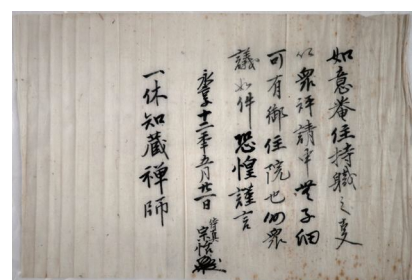 如意菴住持職之叓
以衆評請申者無子細
可有御住院也仍衆
議如件恐惶謹言
永享十二年五月廿一日
宗怡
一休知蔵禅師